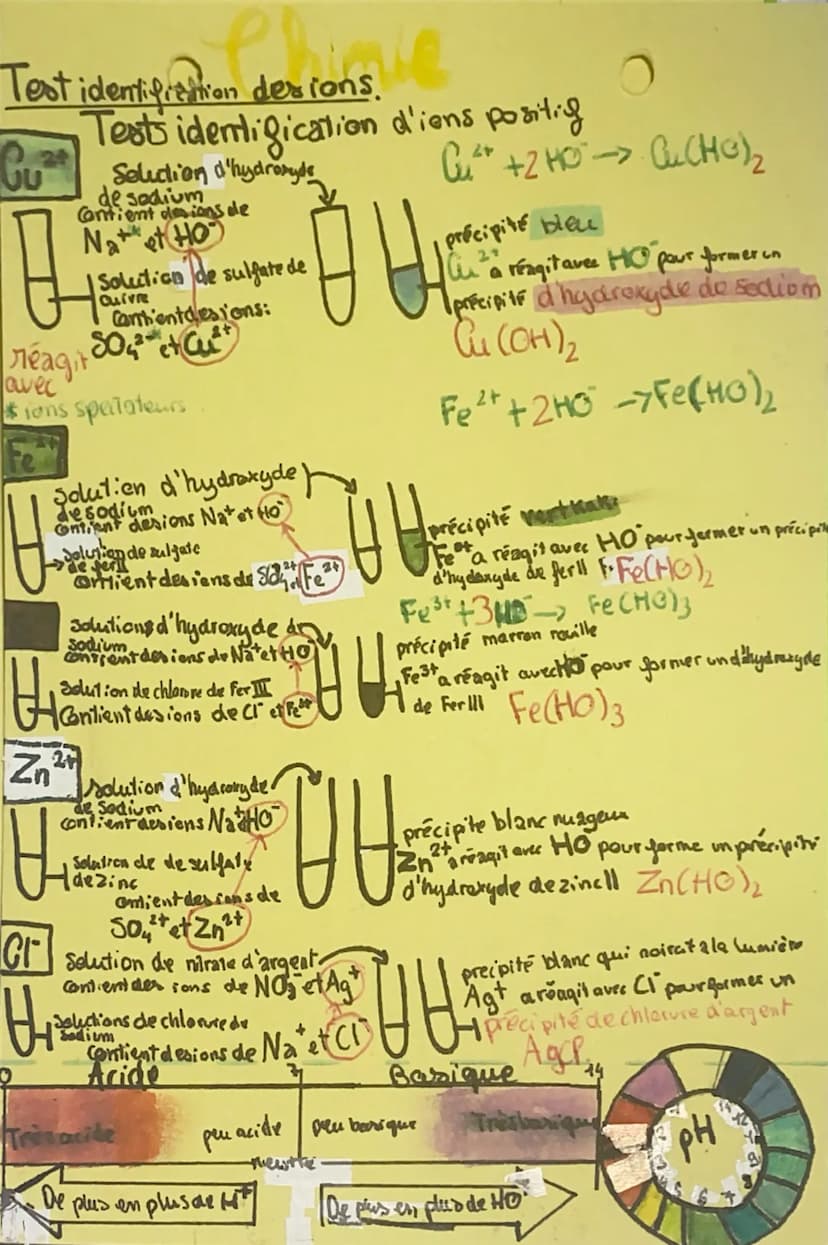 Chimie
Test identification des ions.
Tests identification d'ions positif
Cu²⁺
Solution d'hydroxyde
de sodium
contient des ions de
Na⁺* et HO⁻
Solution de sulfate de
cuivre
Contient des ions:
SO₄²⁻* et Cu²⁺
réagit
avec
* ions spectateurs
Cu²⁺ + 2HO⁻ → Cu(HO)₂
précipité bleu
Cu²⁺ a réagit avec HO⁻ pour former un
précipité d'hydroxyde de sodium
Cu(OH)₂
Fe²⁺ + 2HO⁻ → Fe(HO)₂
Fe²⁺
Solution d'hydroxyde
de sodium
contient des ions Na⁺ et HO⁻
Solution de sulfate
de fer II
contient des ions de SO₄²⁺ et Fe²⁺
précipité vert kaki
Fe²⁺ a réagit avec HO⁻ pour former un précipit
d'hydoxyde de fer II Fe(HO)₂
Fe³⁺ + 3HO⁻ → Fe(HO)₃
Solutions d'hydroxyde de
sodium
contient des ions de Na⁺ et HO⁻
Solution de chlorure de Fer III
Contient des ions de Cl⁻ et
précipité marron rouille
Fe³⁺ a réagit avec HO⁻ pour former un d'hydroxyde
de Fer III Fe(HO)₃
Zn²⁺
Solution d'hydroxyde
de Sodium
contient des ions Na⁺ HO⁻
Solution de de sulfate
de Zinc
contient des ions de
SO₄²⁺ et Zn²⁺
précipite blanc nuageux
Zn²⁺ a réagit avec HO⁻ pour forme un précipité
d'hydroxyde de zinc II Zn(HO)₂
Cl⁻
Solution de nitrate d'argent
contient des ions de NO₃⁻ et Ag⁺
Solutions de chlorure de
Sodium
Contient des ions de Na⁺ et Cl⁻
precipité blanc qui noircit à la lumière
Ag⁺ a réagit avec Cl⁻ pour former un
précipité de chlorure d'argent
AgCl
0 Acide 7 Basique 14
Très acide peu acide peu basique Très basique
neutre
De plus en plus de H⁺
De plus en plus de HO⁻
pH